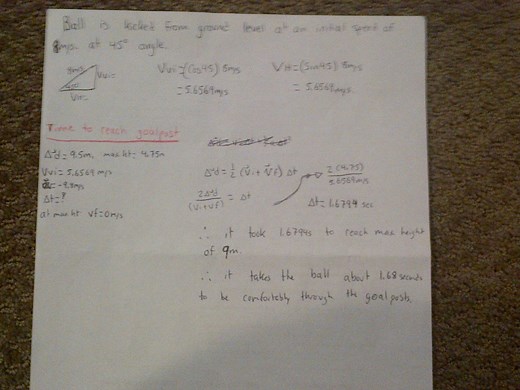 Ball is kicked from ground level at an initial speed of
8m/s. at 45° angle.
8m/s
Vvi=
45°
VH=
Vvi=(Cos45) 8m/s
=5.6569m/s
VH=(Sin45) 8m/s
= 5.6569m/s.
Time to reach goalpost
Δd= 9.5m, max.ht= 4.75m
Vvi=5.6569 m/s
a=-9.8m/s
Δt=?
at max ht Vf=0m/s
Δd=½ (Vi+Vf) Δt
2Δd
(Vi+Vf)
= Δt
2(4.75)
5.6569m/s
Δt=1.6794 sec
∴ it took 1.6794s to reach max height
of 9m.
∴ it takes the ball about 1.68 seconds
to be comfortably through the goal posts.